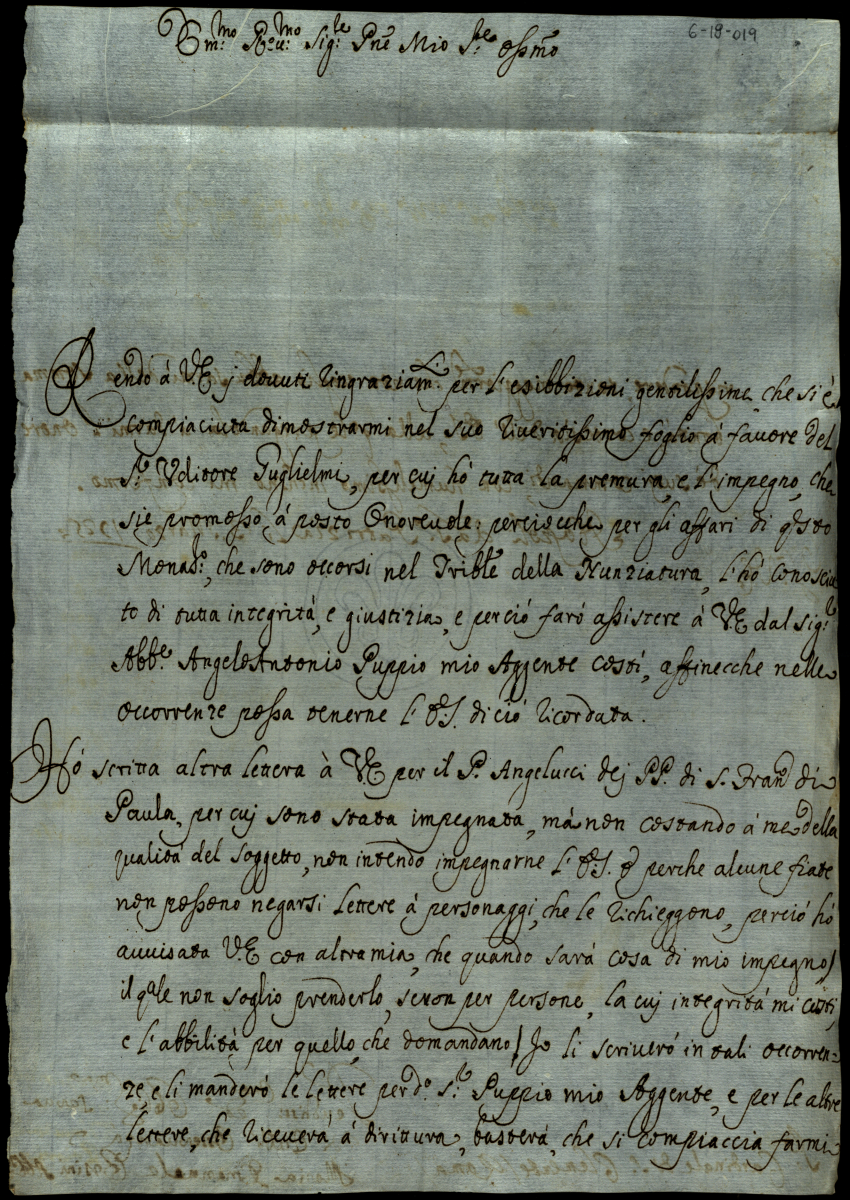 6-19-019
Em.mo R.eu.mo Sig.re Pne Mio S.re ossmo
Rendo á V.E. j douuti ringraziam.ti per l'esibbizioni gentilissime che si è
compiaciuta dimostrarmi nel suo riueritissimo foglio á fauore del
S.r Vditore Guglielmi, per cuj hó tutta la premura, e l'impegno, che
sie promosso á posto Onoreuole: perciocche per gli affari di q.sto
Monad.o, che sono occorsi nel Trible della Nunziatura, l'hó conosciu
to di tutta integritá, e giustizia, e perció faró assistere á V.E. dal sig.r
Abb.e AngeloAntonio Puppio mio Aggente costí, affinecche nelle
occorrenze possa tenerne l' di ció ricordata.
Hó scritta altra lettera à V.E. per il P. Angelucci dej PP. di S. Fran.o di
Paula, per cuj sono stata impegnata, má non costando á me della
qualitá del soggetto, non intendo impegnarne l' perche alcune fiate
non possono negarsi lettere á personaggi, che le richieggono, perció hó
auuisata V.E. con altra mia, che quando sará cosa di mio impegno /
il q.ale non soglio prenderlo, senon per persone, la cuj integritá mi costi,
e l'abbilitá per quello, che domandano / Io li scriueró in tali occorren-
ze, e li manderó le lettere per d.o S.r Puppio mio Aggente, e per le altre
lettere, che riceuerá á dirittura, basterá, che si compiaccia farmi